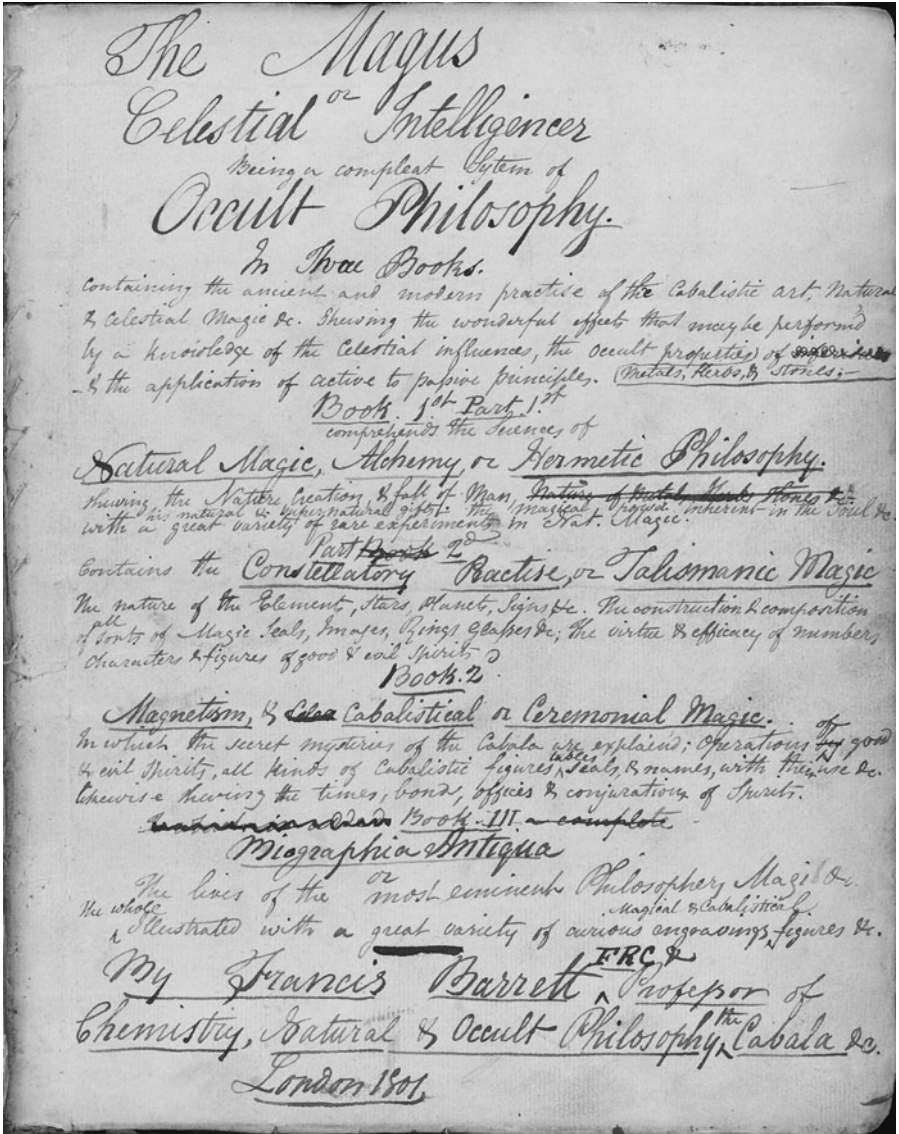 The Magus
or
Celestial Intelligencer
Being a compleat Sytem of
Occult Philosophy.
In Three Books.
Containing the ancient and modern practise of the Cabalistic art, Natural
& Celestial Magic &c. Shewing the wonderful effects that may be perform'd
by a knowledge of the Celestial influences, the occult properties of
Metals, Herbs, & Stones;-
& the application of active to passive principles.
Book. 1st Part. 1st
comprehends the Sciences of
Natural Magic, Alchemy, or Hermetic Philosophy.
shewing the Nature, Creation, & fall of Man, Nature of Metals Herbs Stones &c.
his natural & supernatural gifts. the magical power inherent in the Soul &c.
with a great variety of rare experiments in Nat. Magic.
Part Book 2d
Contains the Constellatory Practise, or Talismanic Magic
the nature of the Elements, Stars, Planets, Signs &c. The construction & composition
all
of sorts of Magic Seals, Images, Rings, Glasses &c; the virtue & efficacy of numbers
characters & figures of good & evil spirits
Book. 2d
Magnetism, & Cabalistical or Ceremonial Magic.
In which the secret mysteries of the Cabala are explain'd; operations by of good
tables
& evil spirits, all kinds of Cabalistic figures, Seals, & names, with their use &c.
likewise shewing the times, bonds, offices & conjurations of Spirits.
Book. III. complete
Biographia Antiqua
or
The lives of the most eminent Philosophers, Magi &c.
the whole Magical & Cabalistical
illustrated with a great variety of curious engravings, figures &c.
FRC &
By Francis Barrett Professor of
Chemistry, Natural & Occult Philosophy, the Cabala &c.
London 1801.